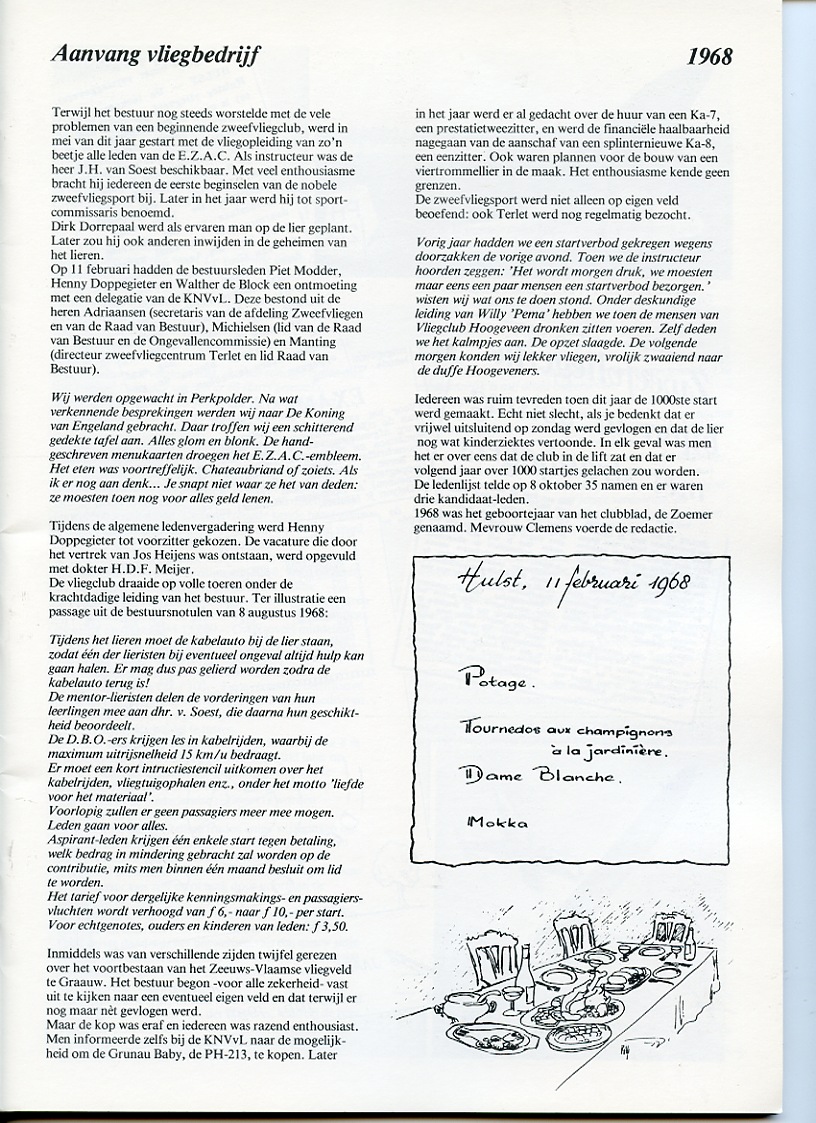 Aanvang vliegbedrijf
1968
Terwijl het bestuur nog steeds worstelde met de vele
problemen van een beginnende zweefvliegclub, werd in
mei van dit jaar gestart met de vliegopleiding van zo'n
beetje alle leden van de E.Z.A.C. Als instructeur was de
heer J.H. van Soest beschikbaar. Met veel enthousiasme
bracht hij iedereen de eerste beginselen van de nobele
zweefvliegsport bij. Later in het jaar werd hij tot sport-
commissaris benoemd.
Dirk Dorrepaal werd als ervaren man op de lier geplant.
Later zou hij ook anderen inwijden in de geheimen van
het lieren.
Op 11 februari hadden de bestuursleden Piet Modder,
Henny Doppegieter en Walther de Block een ontmoeting
met een delegatie van de KNVvL. Deze bestond uit de
heren Adriaansen (secretaris van de afdeling Zweefvliegen
en van de Raad van Bestuur), Michielsen (lid van de Raad
van Bestuur en de Ongevallencommissie) en Manting
(directeur zweefvliegcentrum Terlet en lid Raad van
Bestuur).
Wij werden opgewacht in Perkpolder. Na wat
verkennende besprekingen werden wij naar De Koning
van Engeland gebracht. Daar troffen wij een schitterend
gedekte tafel aan. Alles glom en blonk. De hand-
geschreven menukaarten droegen het E.Z.A.C.-embleem.
Het eten was voortreffelijk. Chateaubriand of zoiets. Als
ik er nog aan denk... Je snapt niet waar ze het van deden:
ze moesten toen nog voor alles geld lenen.
Tijdens de algemene ledenvergadering werd Henny
Doppegieter tot voorzitter gekozen. De vacature die door
het vertrek van Jos Heijens was ontstaan, werd opgevuld
met dokter H.D.F. Meijer.
De vliegclub draaide op volle toeren onder de
krachtdadige leiding van het bestuur. Ter illustratie een
passage uit de bestuursnotulen van 8 augustus 1968:
Tijdens het lieren moet de kabelauto bij de lier staan,
zodat één der lieristen bij eventueel ongeval altijd hulp kan
gaan halen. Er mag dus pas gelierd worden zodra de
kabelauto terug is!
De mentor-lieristen delen de vorderingen van hun
leerlingen mee aan dhr. v. Soest, die daarna hun geschikt-
heid beoordeelt.
De D.B.O.-ers krijgen les in kabelrijden, waarbij de
maximum uitrijsnelheid 15 km/u bedraagt.
Er moet een kort intructiestencil uitkomen over het
kabelrijden, vliegtuigophalen enz., onder het motto 'liefde
voor het materiaal'.
Voorlopig zullen er geen passagiers meer mee mogen.
Leden gaan voor alles.
Aspirant-leden krijgen één enkele start tegen betaling,
welk bedrag in mindering gebracht zal worden op de
contributie, mits men binnen één maand besluit om lid
te worden.
Het tarief voor dergelijke kenningsmakings- en passagiers-
vluchten wordt verhoogd van f 6,- naar f 10,- per start.
Voor echtgenotes, ouders en kinderen van leden: f 3,50.
Inmiddels was van verschillende zijden twijfel gerezen
over het voortbestaan van het Zeeuws-Vlaamse vliegveld
te Graauw. Het bestuur begon -voor alle zekerheid- vast
uit te kijken naar een eventueel eigen veld en dat terwijl er
nog maar nèt gevlogen werd.
Maar de kop was eraf en iedereen was razend enthousiast.
Men informeerde zelfs bij de KNVvL naar de mogelijk-
heid om de Grunau Baby, de PH-213, te kopen. Later
in het jaar werd er al gedacht over de huur van een Ka-7,
een prestatietweezitter, en werd de financiële haalbaarheid
nagegaan van de aanschaf van een splinternieuwe Ka-8,
een eenzitter. Ook waren plannen voor de bouw van een
viertrommellier in de maak. Het enthousiasme kende geen
grenzen.
De zweefvliegsport werd niet alleen op eigen veld
beoefend: ook Terlet werd nog regelmatig bezocht.
Vorig jaar hadden we een startverbod gekregen wegens
doorzakken de vorige avond. Toen we de instructeur
hoorden zeggen: 'Het wordt morgen druk, we moesten
maar eens een paar mensen een startverbod bezorgen.'
wisten wij wat ons te doen stond. Onder deskundige
leiding van Willy 'Pema' hebben we toen de mensen van
Vliegclub Hoogeveen dronken zitten voeren. Zelf deden
we het kalmpjes aan. De opzet slaagde. De volgende
morgen konden wij lekker vliegen, vrolijk zwaaiend naar
de duffe Hoogeveners.
Iedereen was ruim tevreden toen dit jaar de 1000ste start
werd gemaakt. Echt niet slecht, als je bedenkt dat er
vrijwel uitsluitend op zondag werd gevlogen en dat de lier
nog wat kinderziektes vertoonde. In elk geval was men
het er over eens dat de club in de lift zat en dat er
volgend jaar over 1000 startjes gelachen zou worden.
De ledenlijst telde op 8 oktober 35 namen en er waren
drie kandidaat-leden.
1968 was het geboortejaar van het clubblad, de Zoemer
genaamd. Mevrouw Clemens voerde de redactie.
Hulst, 11 februari 1968
Potage.
Tournedos aux champignons
à la jardinière.
Dame Blanche.
Mokka